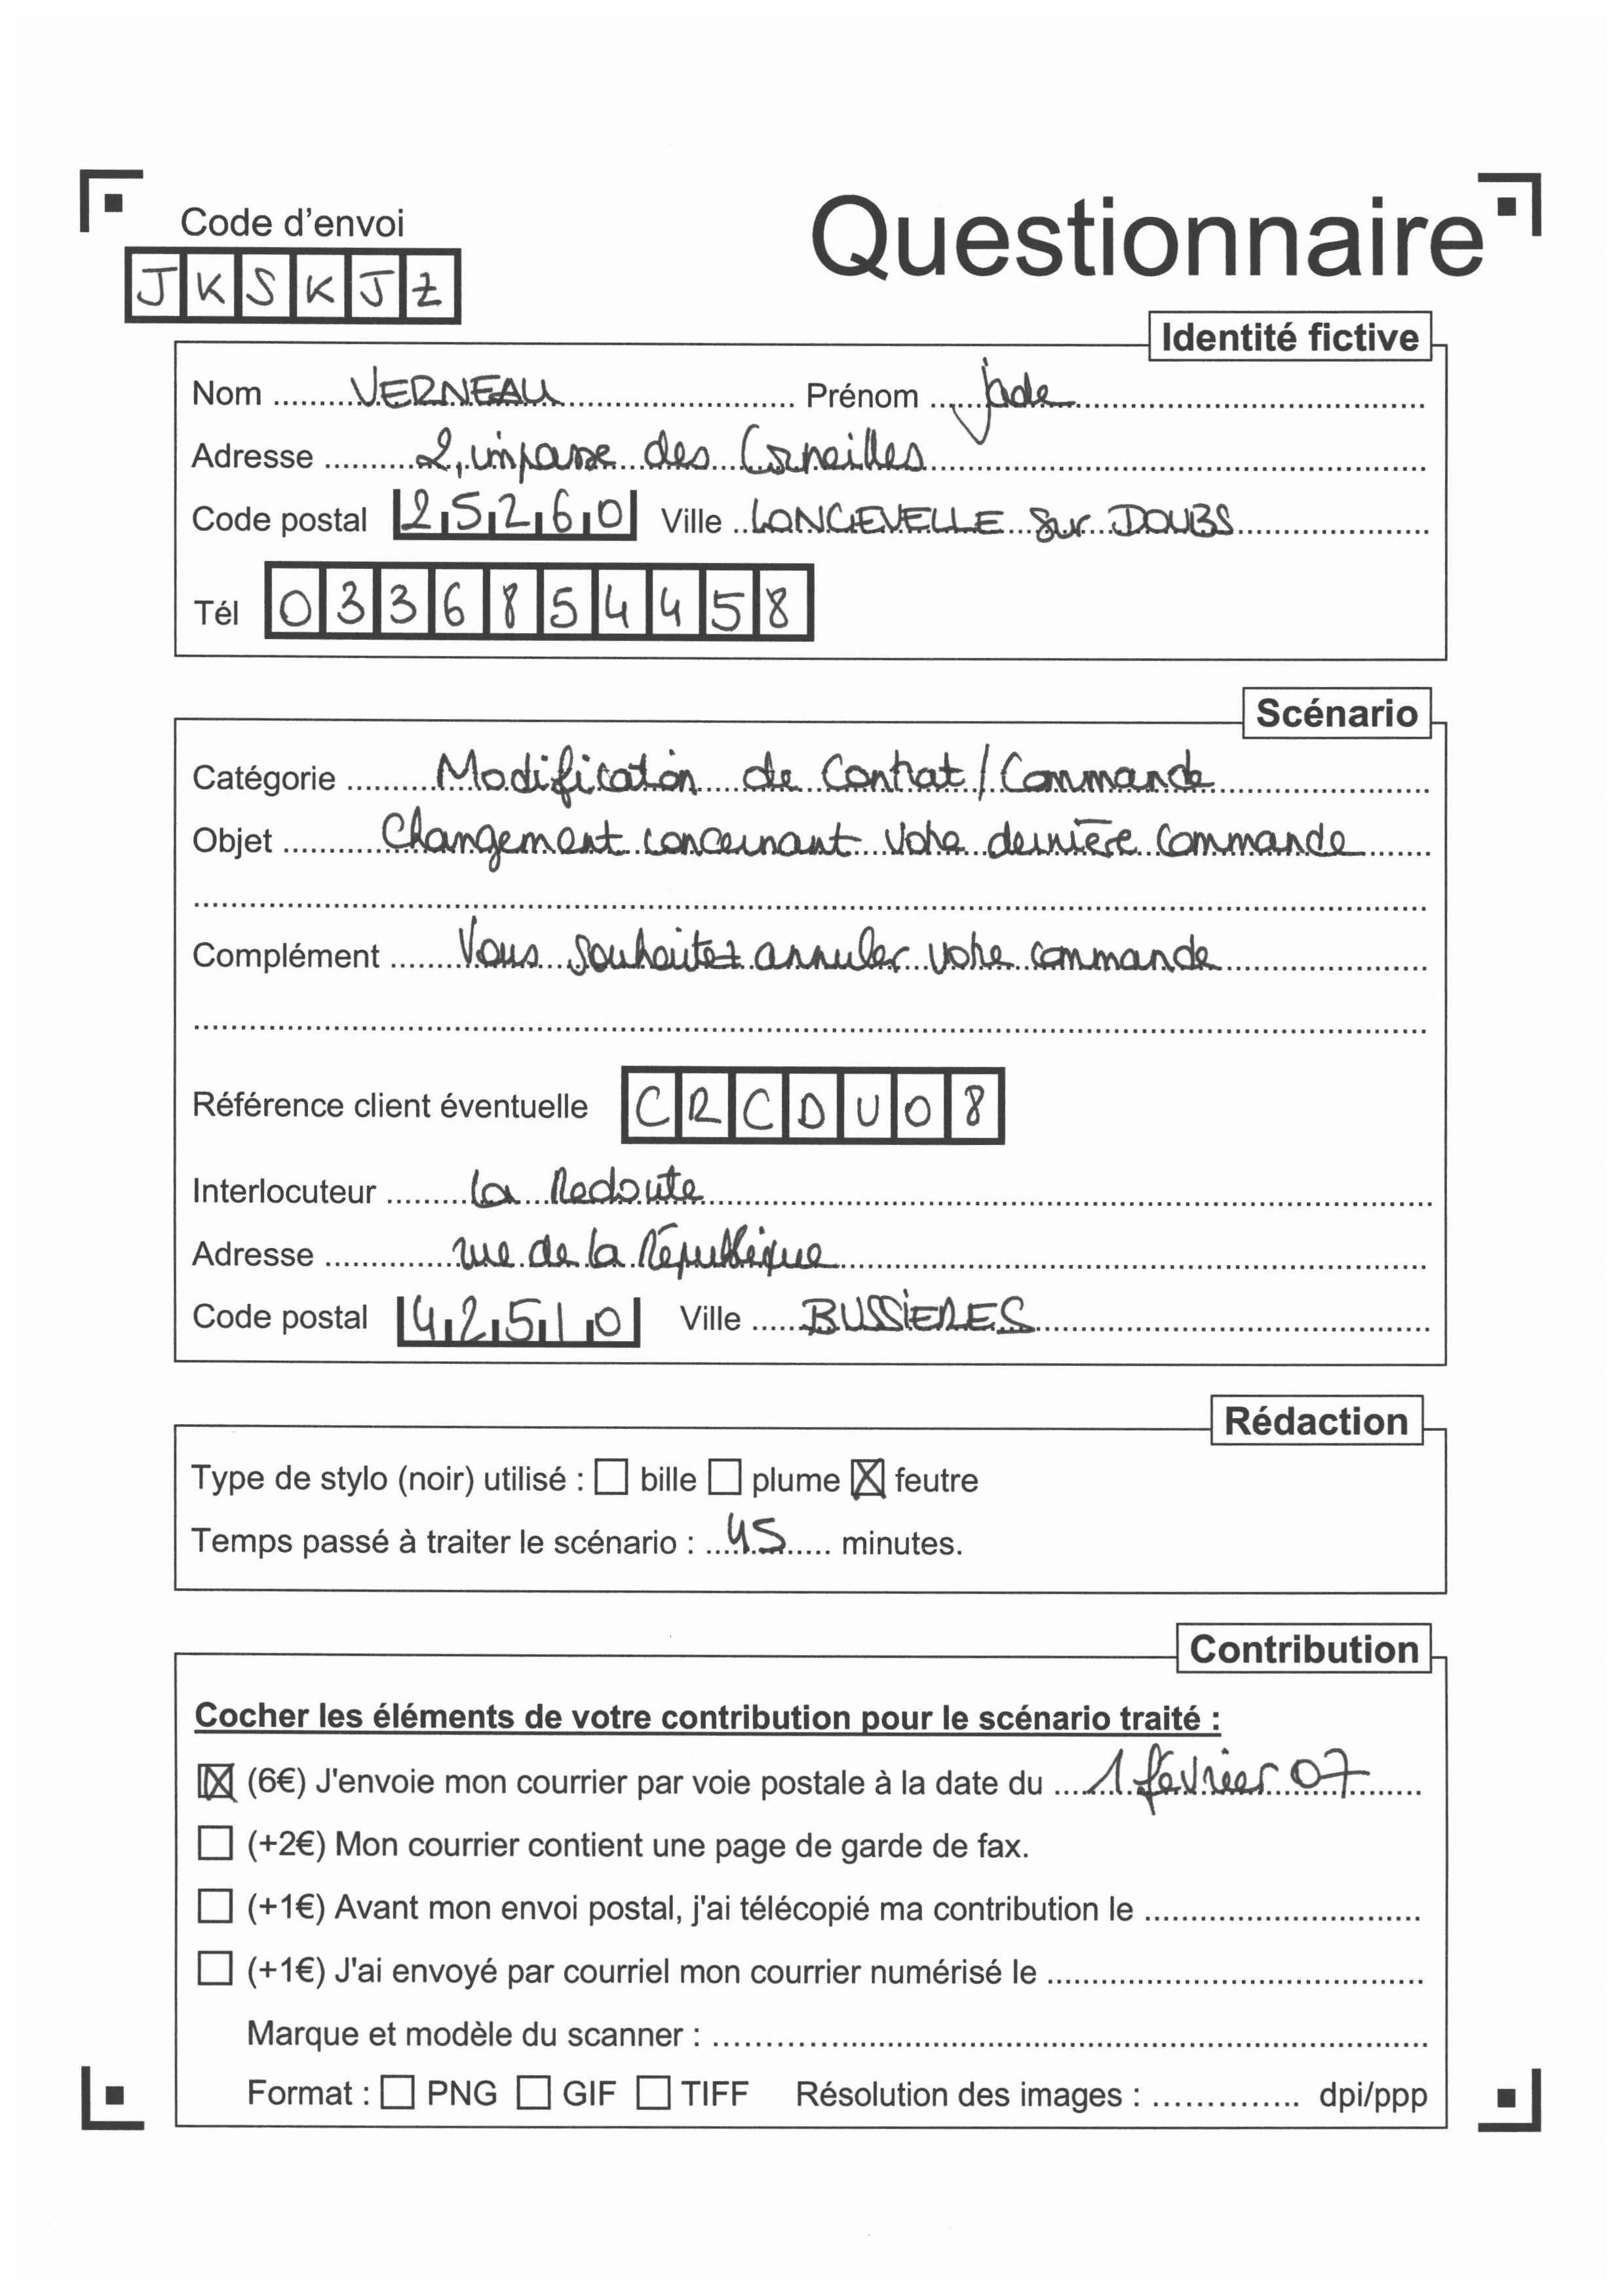 Code d'envoi
Questionnaire
JKSKJZ
Identité fictive
Nom ........ VERNEAU ........ Prénom ........ jade ........
Adresse ........ 2, impasse des Corneilles ........
Code postal 25260 Ville .. LONGEVELLE sur DOUBS ........
Tél 0336854458
Scénario
Catégorie ........ Modification de contrat / Commande ........
Objet ........ Changement concernant votre dernière commande ........
Complément ........ Vous souhaitez annuler votre commande ........
Référence client éventuelle CRCDU08
Interlocuteur ........ la Redoute ........
Adresse ........ rue de la République ........
Code postal 42510 Ville ........ BUSSIERES ........
Rédaction
Type de stylo (noir) utilisé : ☐ bille ☐ plume ☒ feutre
Temps passé à traiter le scénario : .... 45 .... minutes.
Contribution
Cocher les éléments de votre contribution pour le scénario traité :
☒ (6€) J'envoie mon courrier par voie postale à la date du .... 1 février 07 ....
☐ (+2€) Mon courrier contient une page de garde de fax.
☐ (+1€) Avant mon envoi postal, j'ai télécopié ma contribution le ........
☐ (+1€) J'ai envoyé par courriel mon courrier numérisé le ........
Marque et modèle du scanner : ........
Format : ☐ PNG ☐ GIF ☐ TIFF Résolution des images : ........ dpi/ppp